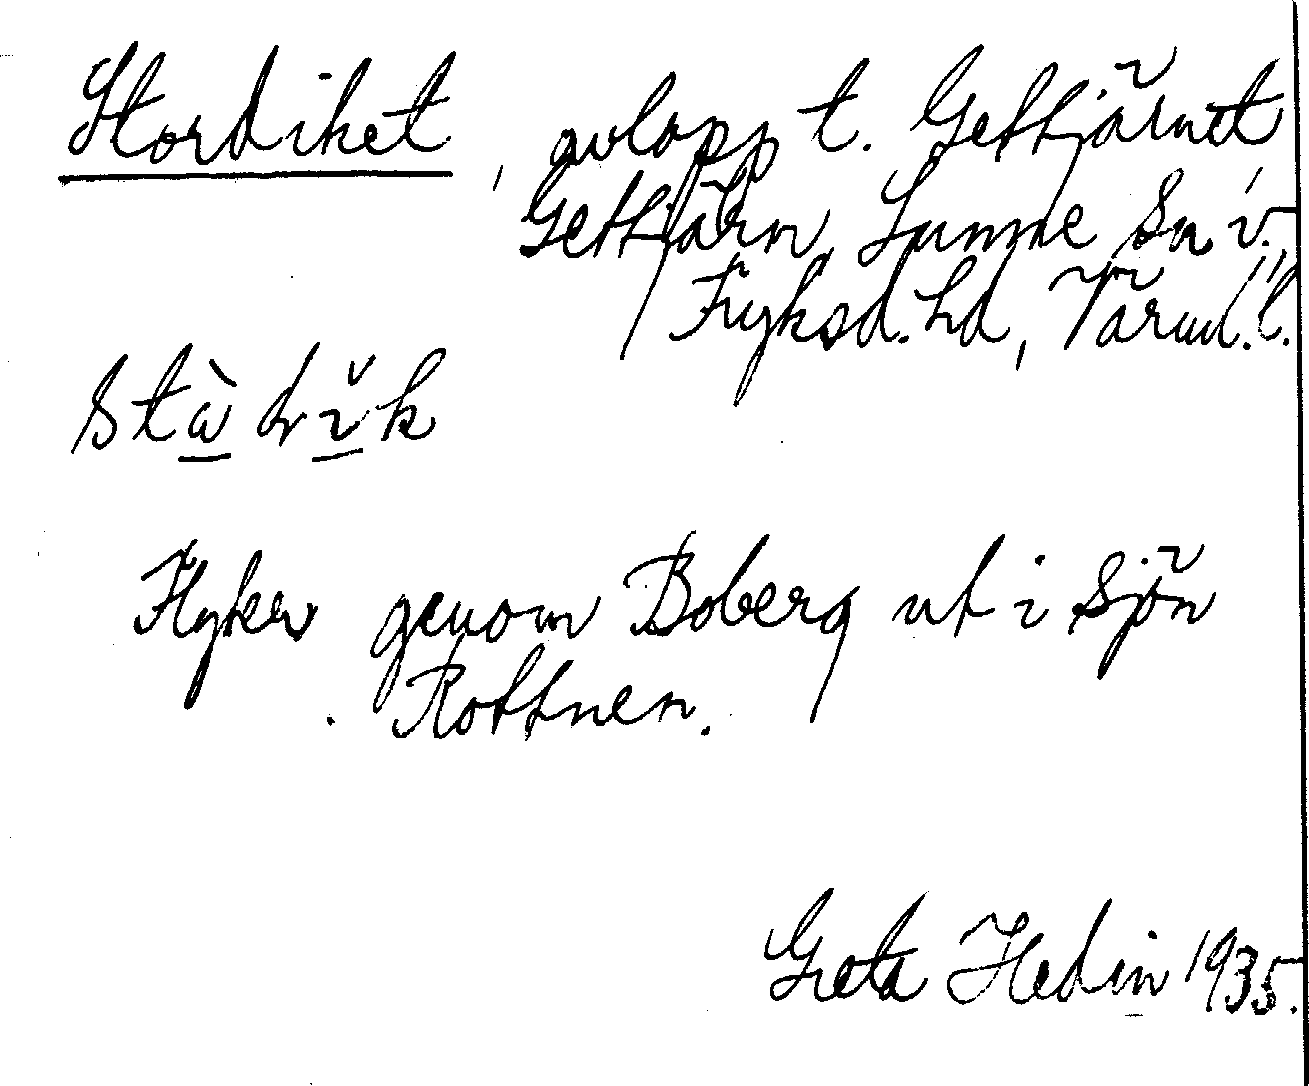 Stordiket, avlopp t. Gettjärnet
Gettjärn, Sunne Sn i v.
Fryksd. hd, Värml. l.
stὰdrǐk
Flyter genom Boberg ut i sjön
Rottnen.
Greta Hedin 1935.